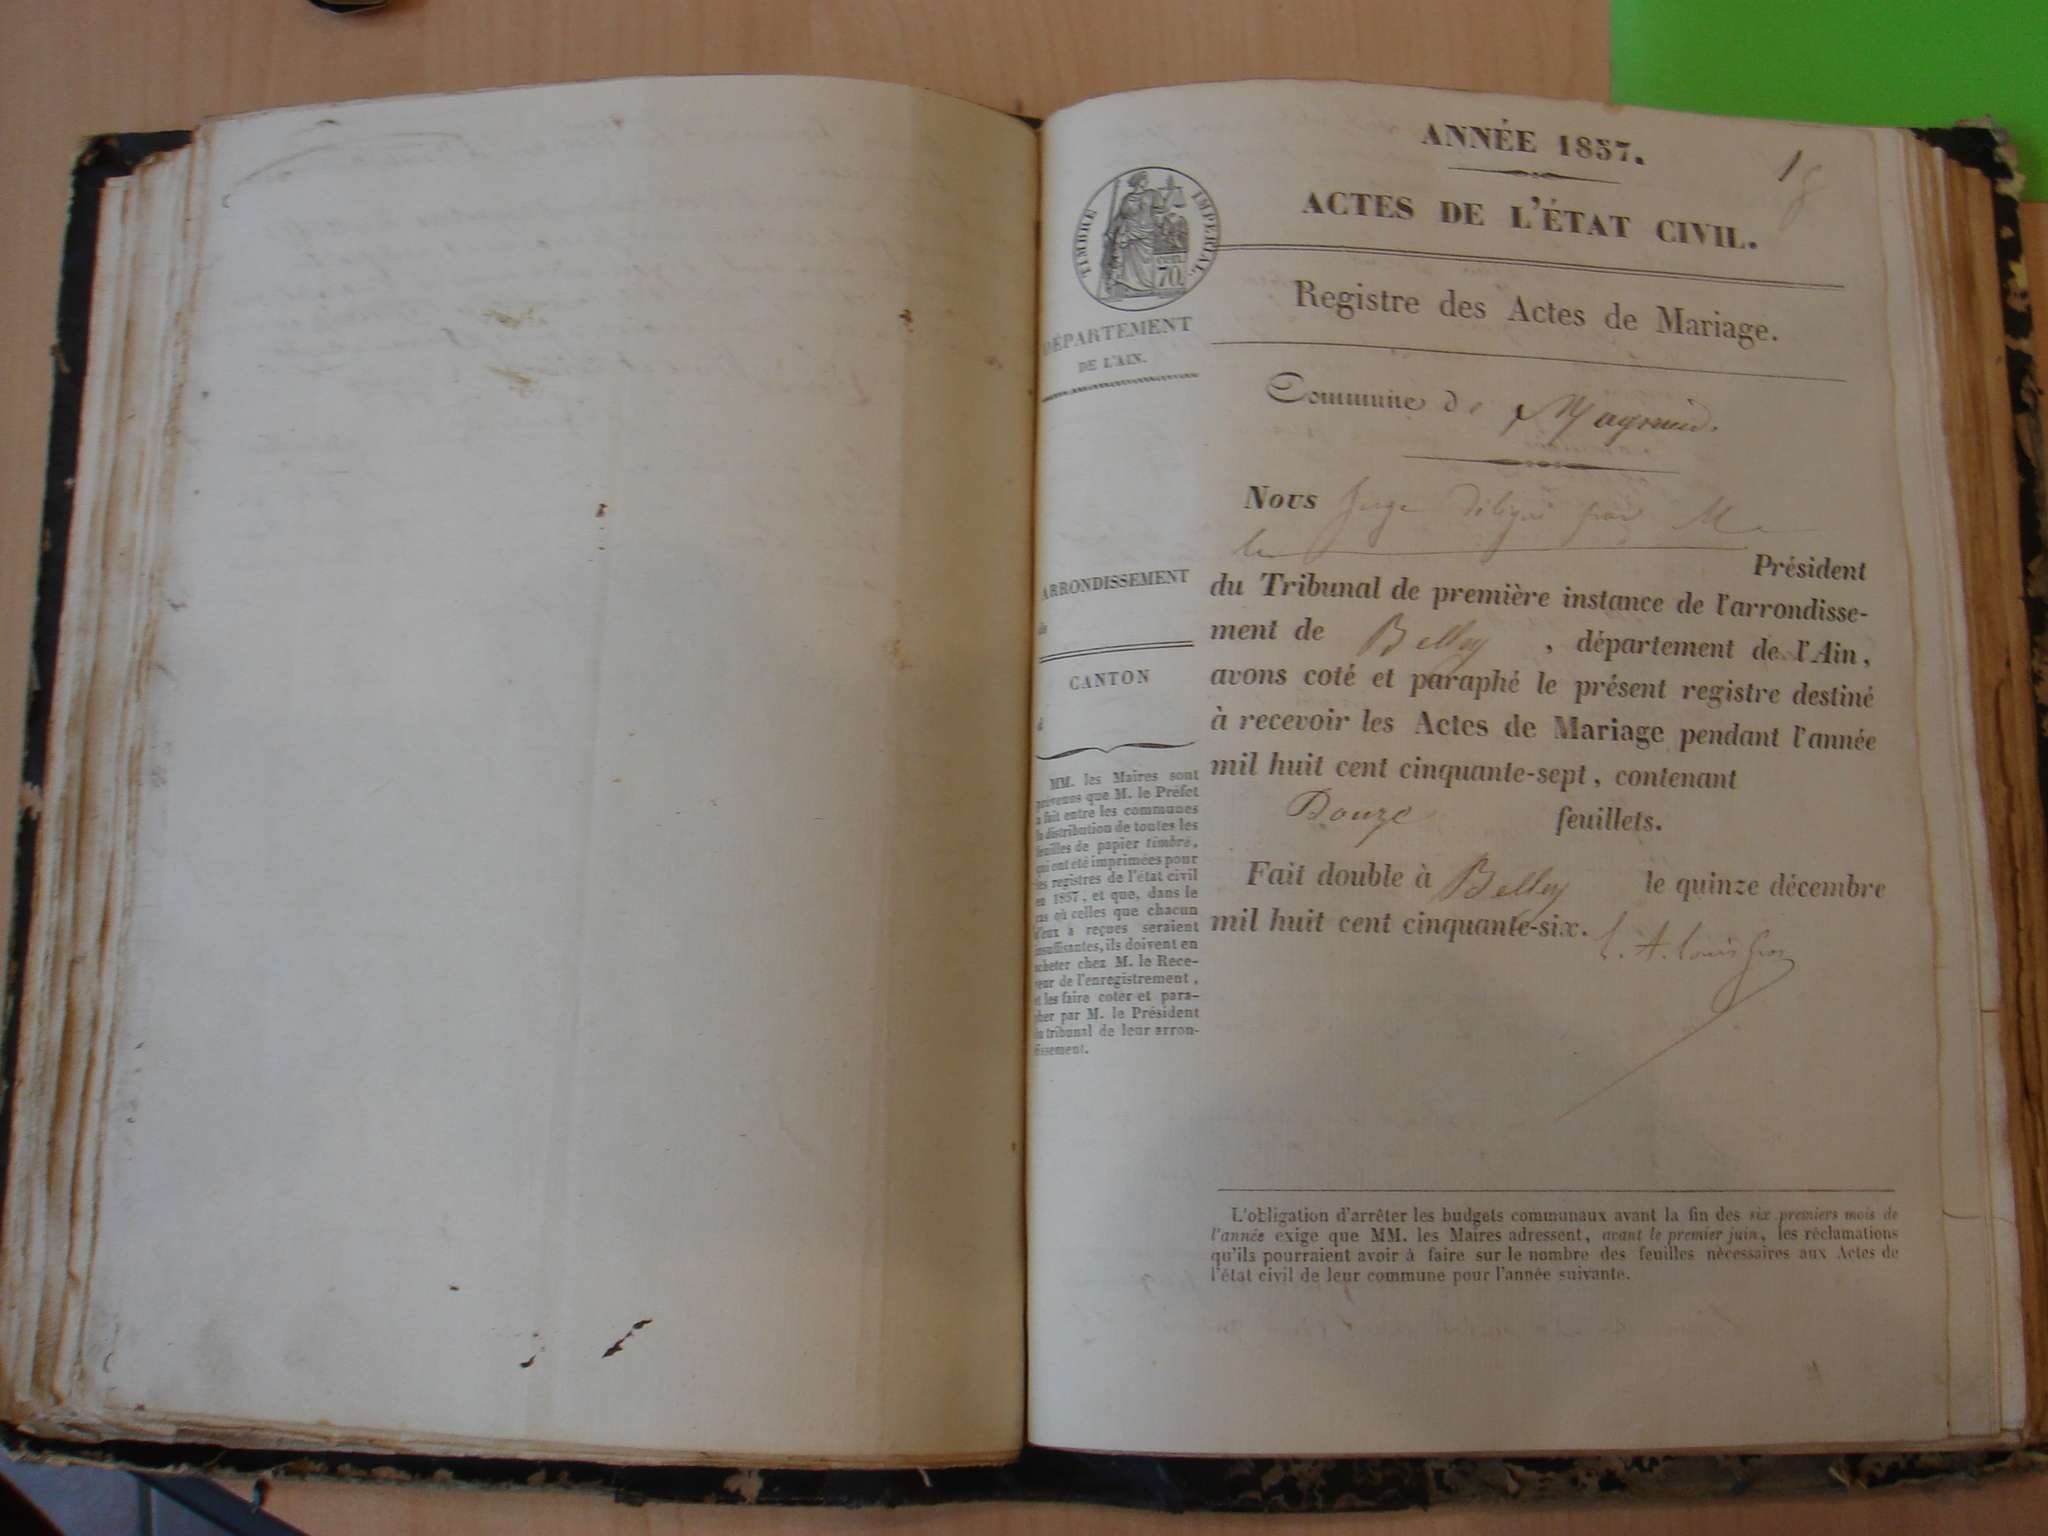 ANNÉE 1857.
1
ACTES DE L'ÉTAT CIVIL.
TIMBRE IMPERIAL.
cen.
70.
Registre des Actes de Mariage.
DÉPARTEMENT
DE L'AIN.
Commune de Magnieu.
Nous Juge délégué par Mr
le Président
du Tribunal de première instance de l'arrondisse-
ment de Belley, département de l'Ain,
avons coté et paraphé le présent registre destiné
à recevoir les Actes de Mariage pendant l'année
mil huit cent cinquante-sept, contenant
Douze feuillets.
Fait double à Belley le quinze décembre
mil huit cent cinquante-six.
ARRONDISSEMENT
de
CANTON
d
MM. les Maires sont
prévenus que M. le Préfet
a fait entre les communes
la distribution de toutes les
feuilles de papier timbré,
qui ont été imprimées pour
les registres de l'état civil
en 1857, et que, dans le
cas où celles que chacun
d'eux a reçues seraient
insuffisantes, ils doivent en
acheter chez M. le Rece-
veur de l'enregistrement,
et les faire coter et para-
pher par M. le Président
du tribunal de leur arron-
dissement.
L'obligation d'arrêter les budgets communaux avant la fin des six premiers mois de
l'année exige que MM. les Maires adressent, avant le premier juin, les réclamations
qu'ils pourraient avoir à faire sur le nombre des feuilles nécessaires aux Actes de
l'état civil de leur commune pour l'année suivante.